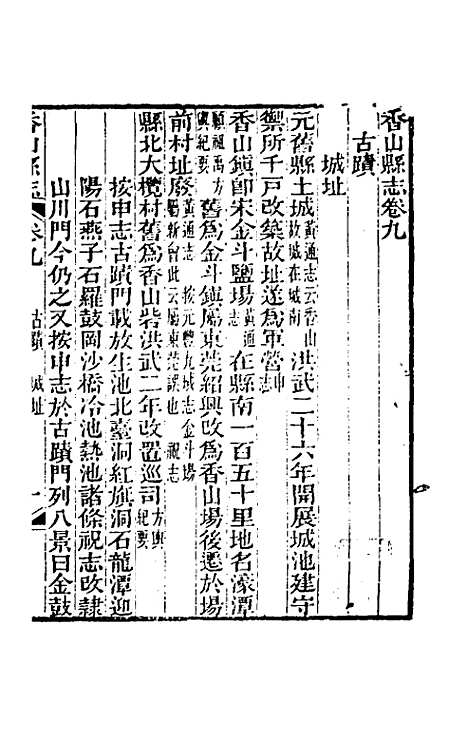 香山縣志卷九
古蹟
城址
元舊縣土城黃通志云香山故城在城南洪武二十六年開展城池建守
禦所千戸改築故址遂爲軍營申志
香山鎮卽宋金斗鹽場黃通志在縣南一百五十里地名濠潭
顧祖禹方輿紀要舊爲金斗鎮屬東莞紹興改爲香山場後遷於場
前村址廢黃通志 按元豐九域志金斗場屬新會此云屬東莞誤也 祝志
縣北大欖村舊爲香山砦洪武二年改置巡司方輿紀要
按申志古蹟門載放生池北臺洞紅旗洞石龍潭迎
陽石燕子石羅鼓岡沙橋冷池熱池諸條祝志改隸
山川門今仍之又按申志於古蹟門列八景曰金鼓
香山縣志 卷九 古蹟 城址 一